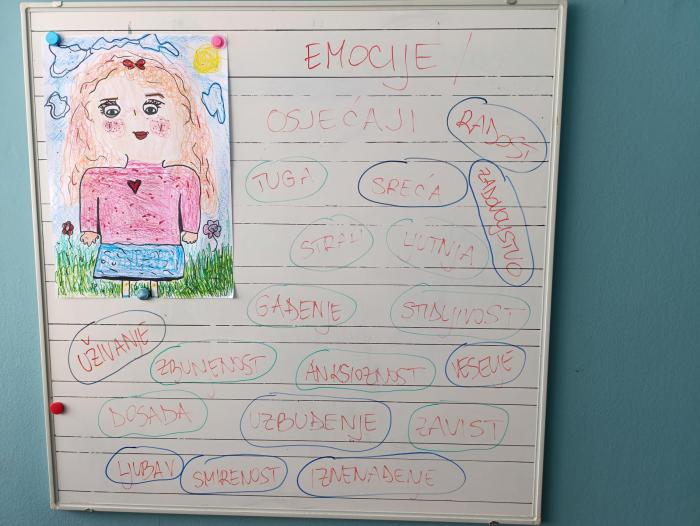 EMOCIJE /
OSJEĆAJI
RADOST
TUGA SREĆA ZADOVOLJSTVO
STRAH LJUTNJA
GAĐENJE STIDLJIVOST
UŽIVANJE ZBUNJENOST ANKSIOZNOST VESELJE
DOSADA UZBUĐENJE ZAVIST
LJUBAV SMIRENOST IZNENAĐENJE